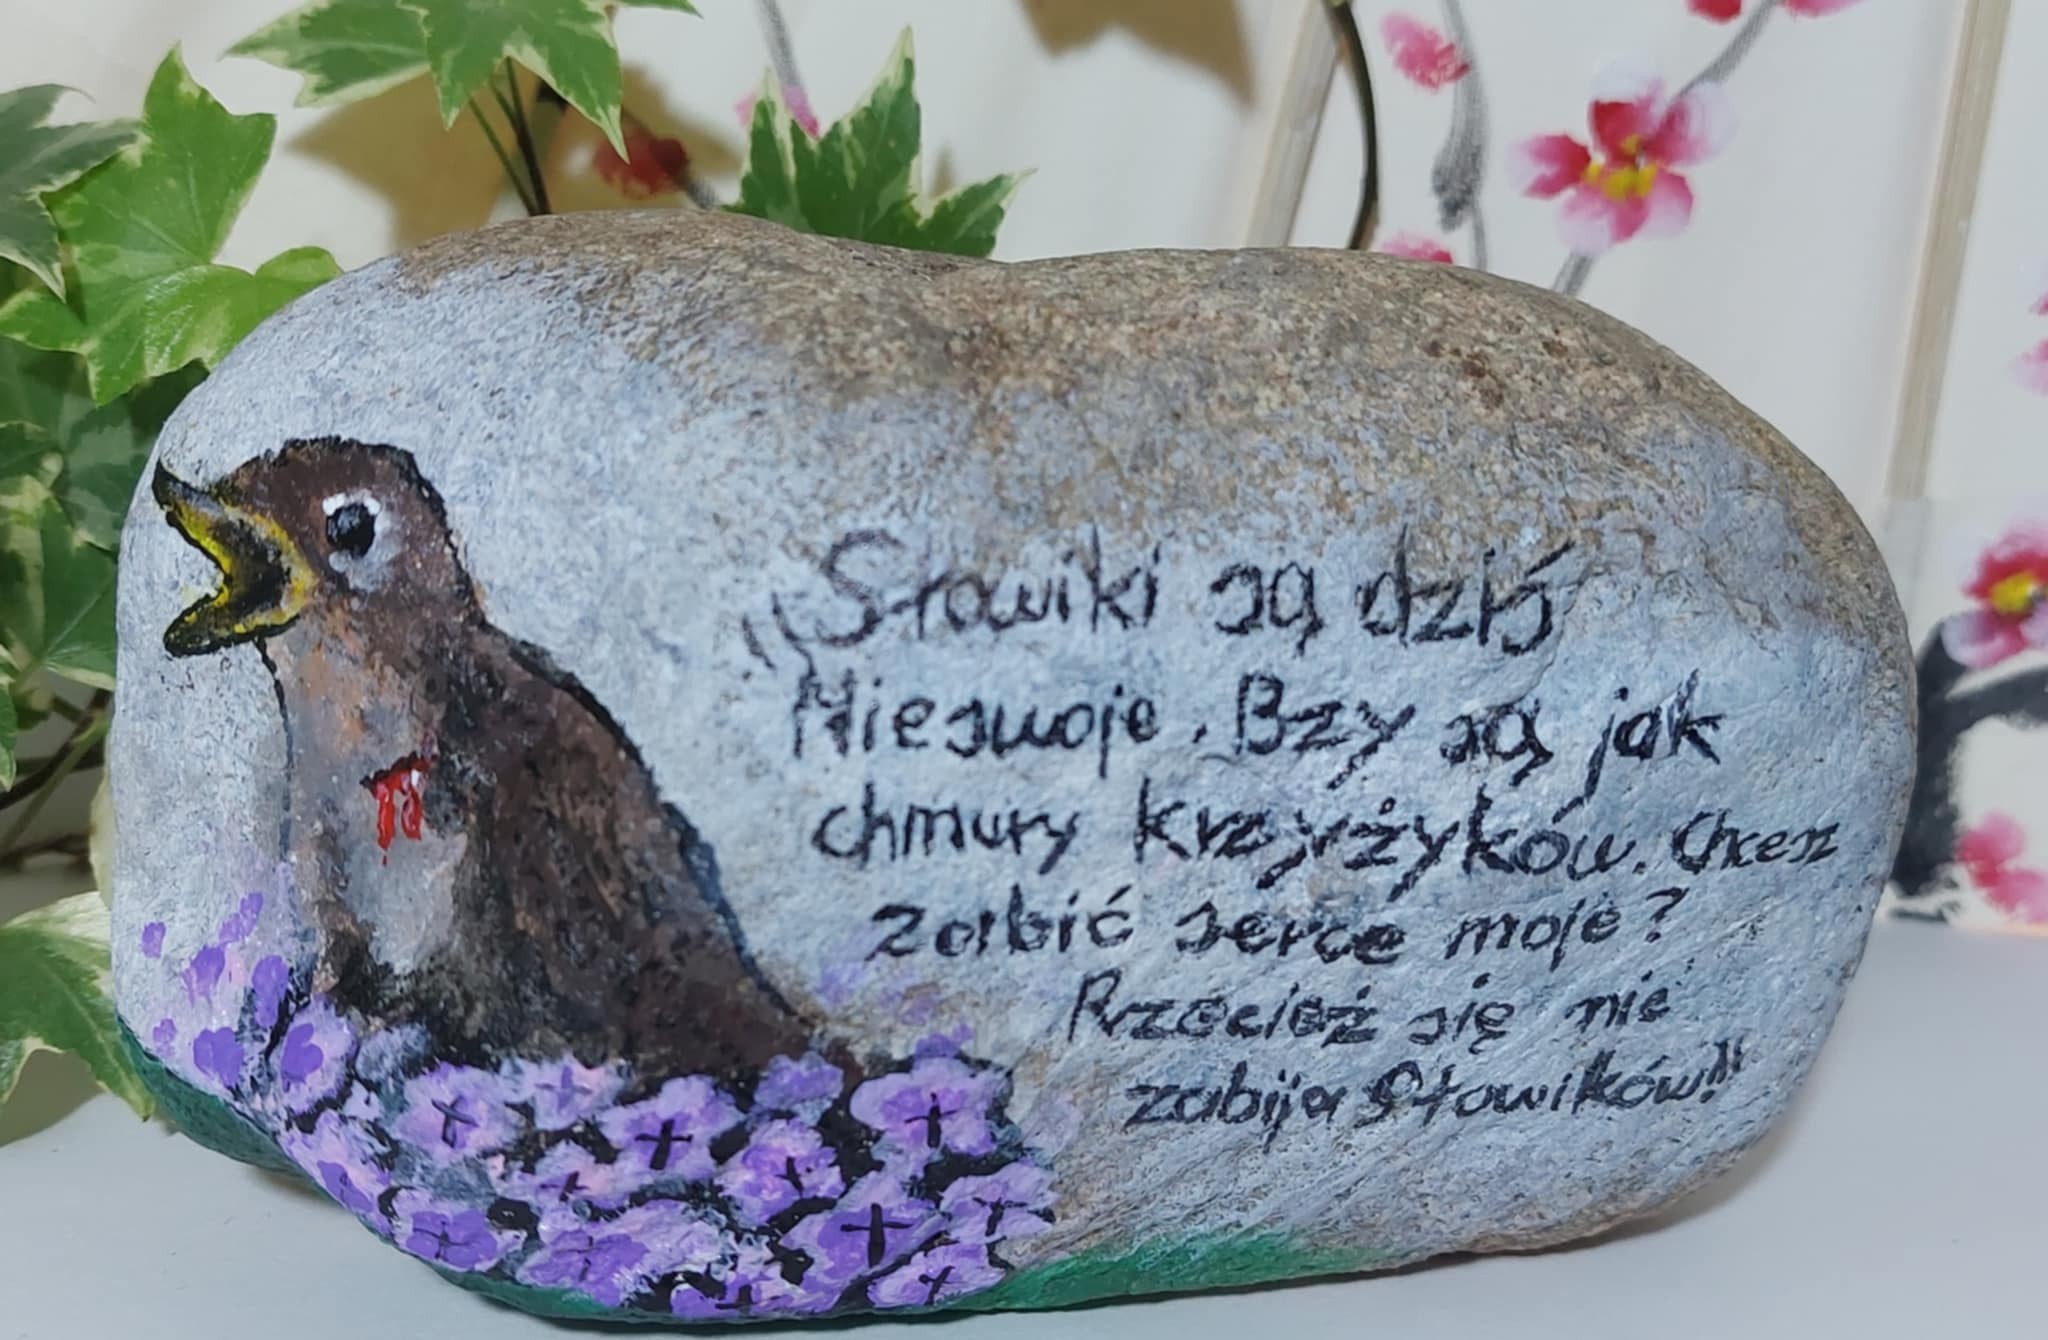 „Słowiki są dziś
Nieswoje. Bzy są jak
chmury krzyżyków. Chcesz
zabić serce moje?
Przecież się nie
zabija Słowików!"